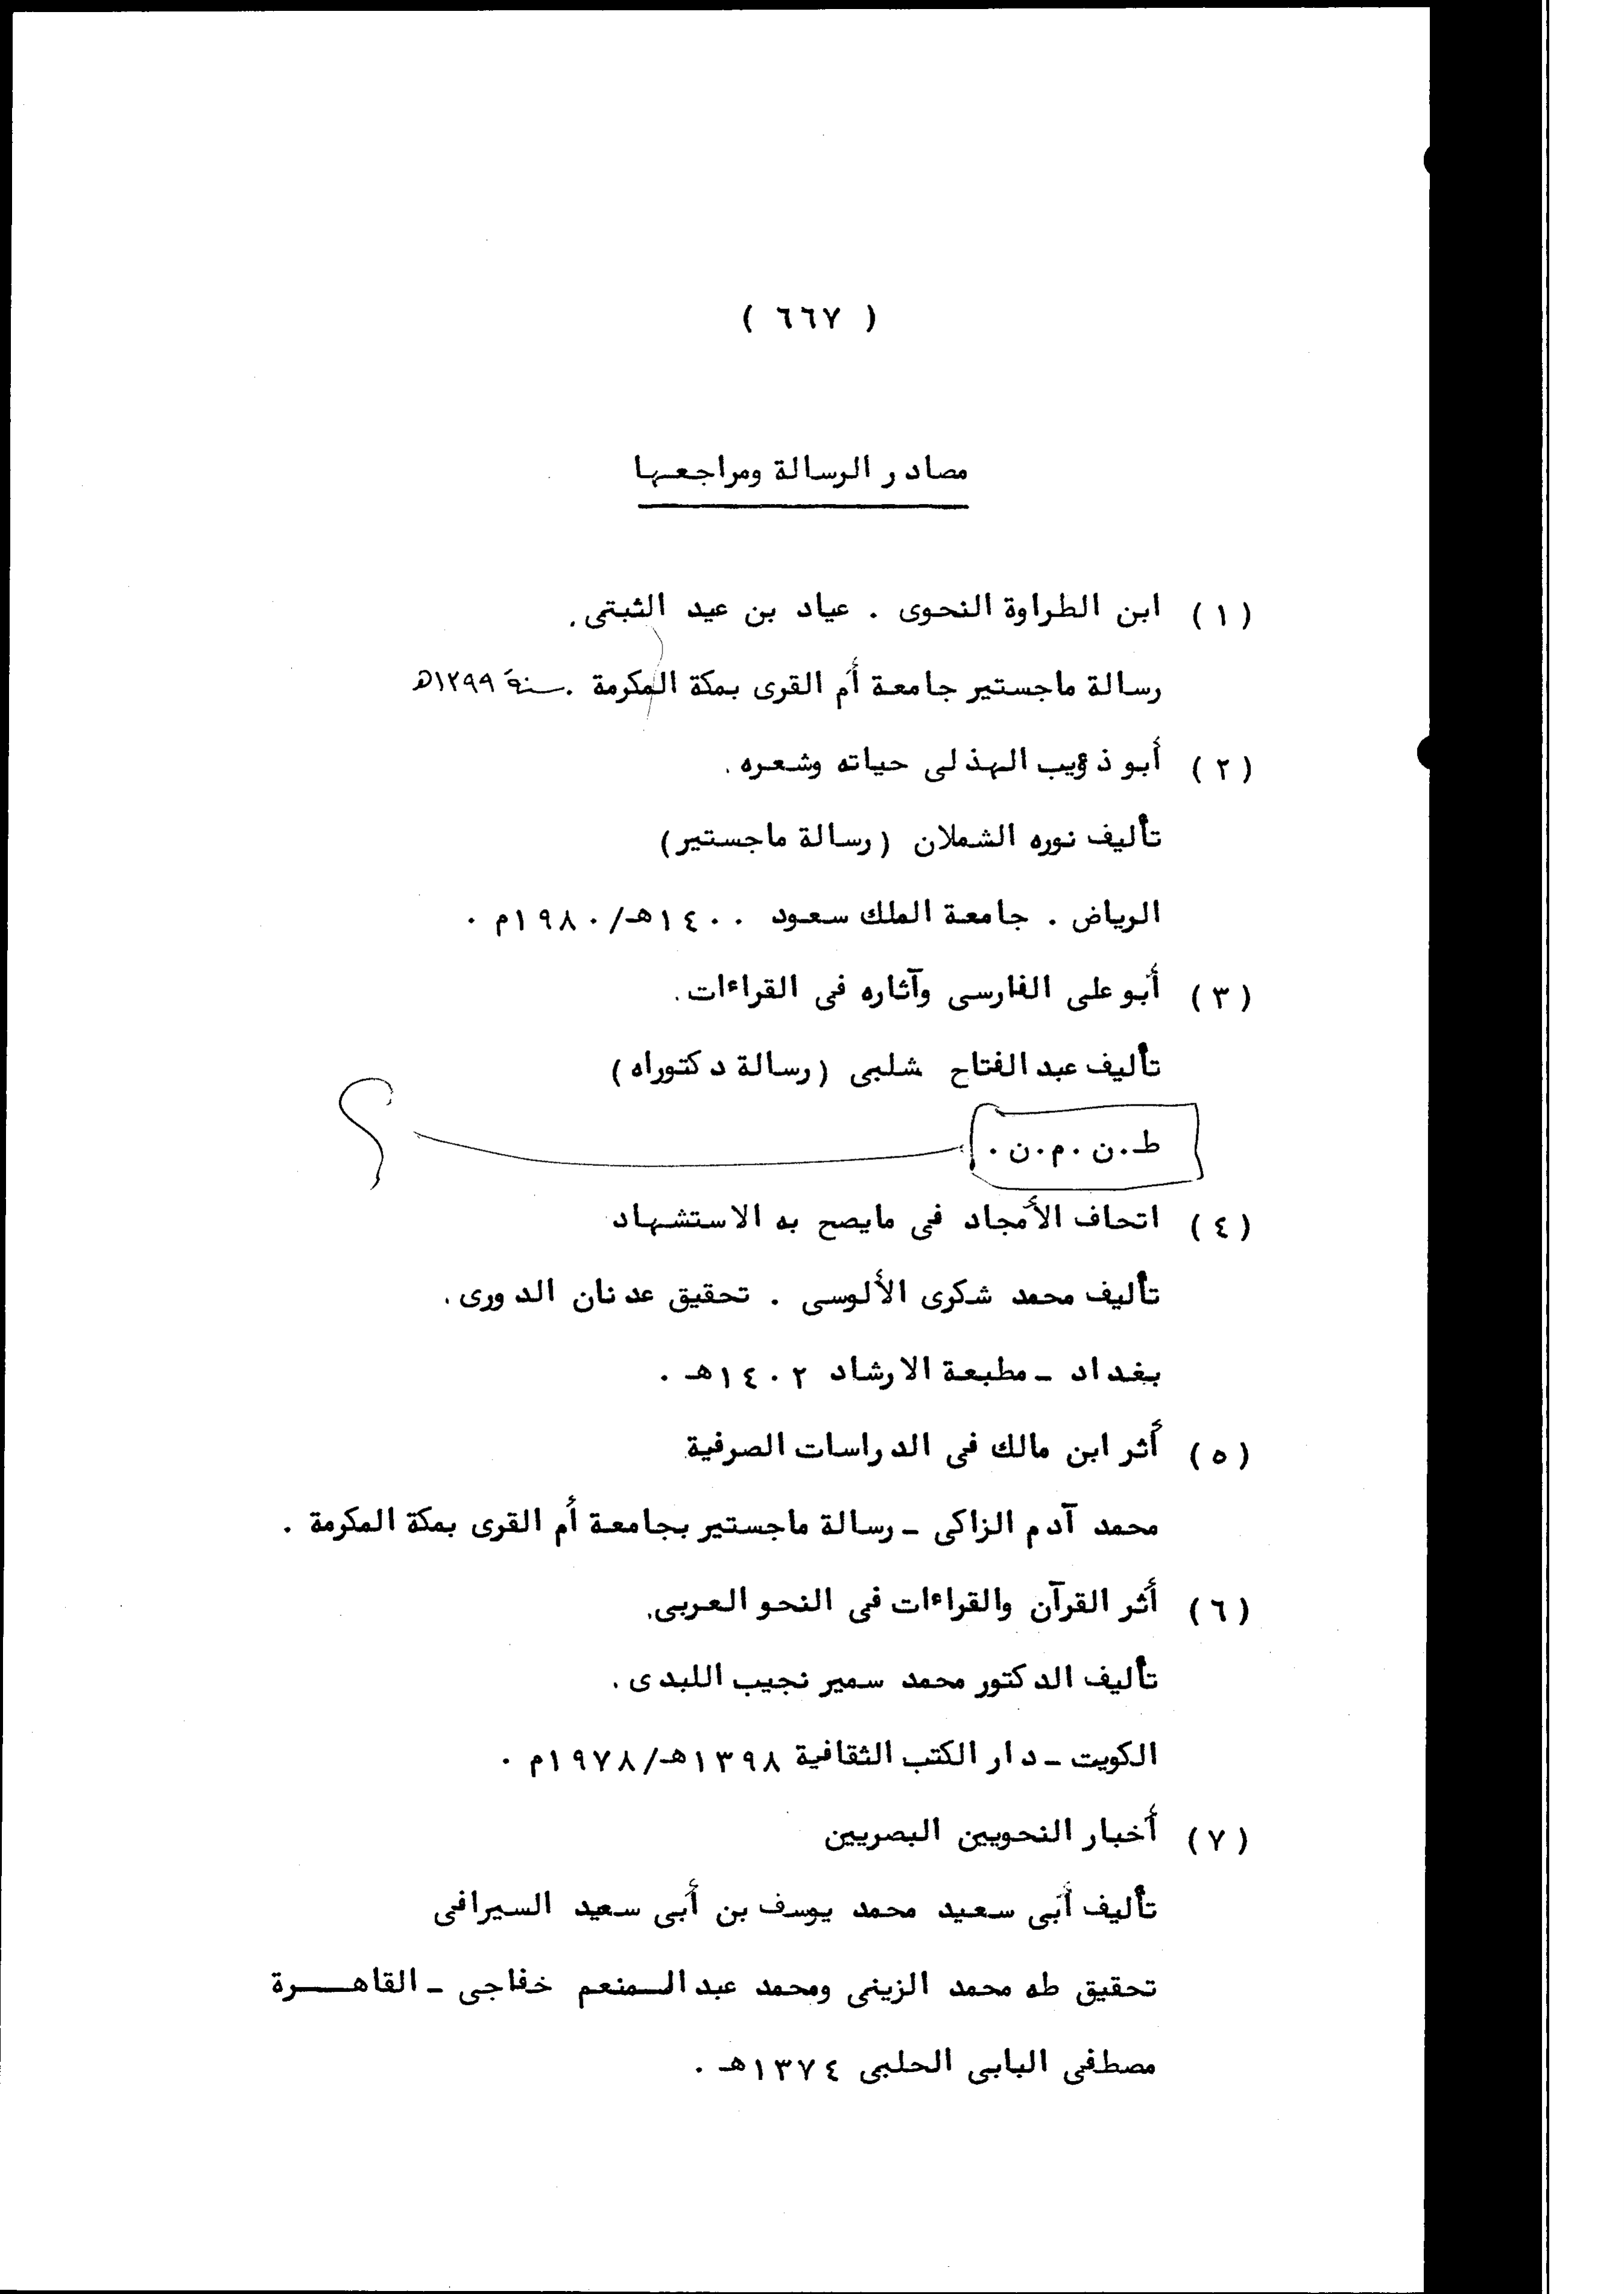 ( ٦٦٧ )
مصادر الرسالة ومراجعها
(١) ابن الطراوة النحوى . عياد بن عيد الثبتى .
رسالة ماجستير جامعة أم القرى بمكة المكرمة . سنة ١٢٩٩هـ
(٢) أبو ذؤيب الهذلى حياته وشعره .
تأليف نوره الشملان (رسالة ماجستير)
الرياض . جامعة الملك سعود ١٤٠٠هـ/١٩٨٠م .
(٣) أبو على الفارسى وآثاره فى القراءات .
تأليف عبد الفتاح شلبى (رسالة دكتوراه)
ط.ن .م.ن . ؟
(٤) اتحاف الأمجاد فى مايصح به الاستشهاد
تأليف محمد شكرى الألوسى . تحقيق عدنان الدورى .
بغداد ـ مطبعة الارشاد ١٤٠٢هـ .
(٥) أثر ابن مالك فى الدراسات الصرفية
محمد آدم الزاكى ـ رسالة ماجستير بجامعة أم القرى بمكة المكرمة .
(٦) أثر القرآن والقراءات فى النحو العربى .
تأليف الدكتور محمد سمير نجيب اللبدى .
الكويت ـ دار الكتب الثقافية ١٣٩٨هـ/١٩٧٨م .
(٧) أخبار النحويين البصريين
تأليف أبى سعيد محمد يوسف بن أبى سعيد السيرافى
تحقيق طه محمد الزينى ومحمد عبد المنعم خفاجى ـ القاهرة
مصطفى البابى الحلبى ١٣٧٤هـ .